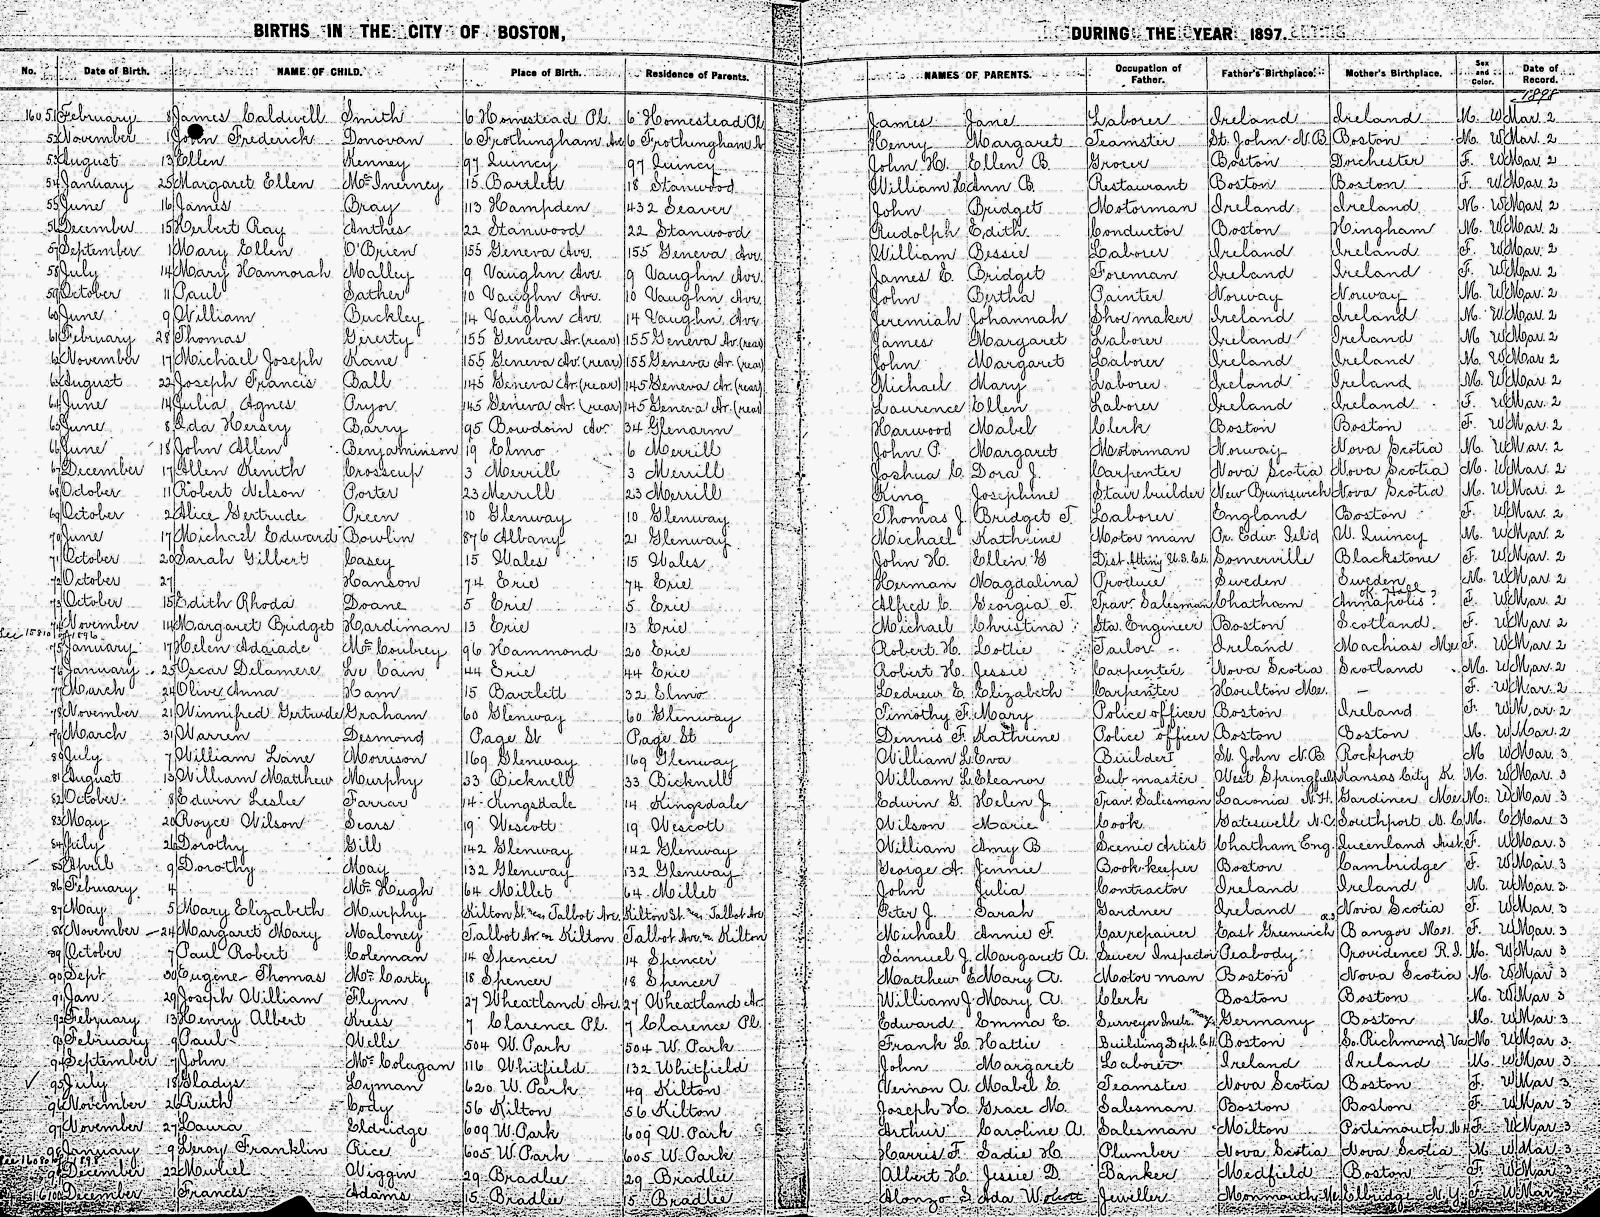 BIRTHS IN THE CITY OF BOSTON, DURING THE YEAR 1897.
No. Date of Birth. NAME OF CHILD. Place of Birth. Residence of Parents. NAMES OF PARENTS. Occupation of Father. Father's Birthplace. Mother's Birthplace. Sex and Color. Date of Record.
1898
16051 February 8 James Caldwell Smith 6 Homestead Pl. 6 Homestead Pl James Jane Laborer Ireland Ireland M. W Mar. 2
52 November 1 John Frederick Donovan 6 Frothingham Ave 6 Frothingham A Henry Margaret Teamster St. John N.B. Boston M. W Mar. 2
53 August 13 Ellen Kenney 97 Quincy 97 Quincy John H. Ellen B. Grocer Boston Dorchester F. W Mar. 2
54 January 25 Margaret Ellen McInerney 15 Bartlett 18 Stanwood William H. Ann B. Restaurant Boston Boston F. W Mar. 2
55 June 16 James Bray 113 Hampden 432 Seaver John Bridget Motorman Ireland Ireland M. W Mar. 2
56 December 15 Herbert Ray Anthes 22 Stanwood 22 Stanwood Rudolph Edith Conductor Boston Hingham M. W Mar. 2
57 September 1 Mary Ellen O'Brien 155 Geneva Ave. 155 Geneva Ave. William Bessie Laborer Ireland Ireland F. W Mar. 2
58 July 14 Mary Hannorah Malley 9 Vaughn Ave. 9 Vaughn Ave. James E. Bridget Foreman Ireland Ireland F. W Mar. 2
59 October 11 Paul Sather 10 Vaughn Ave. 10 Vaughn Ave. John Bertha Painter Norway Norway M. W Mar. 2
60 June 9 William Buckley 14 Vaughn Ave. 14 Vaughn Ave Jeremiah Johannah Shoemaker Ireland Ireland M. W Mar. 2
61 February 28 Thomas Gererty 155 Geneva Av. (rear) 155 Geneva Av. (rear) James Margaret Laborer Ireland Ireland M. W Mar. 2
62 November 17 Michael Joseph Kane 155 Geneva Av. (rear) 155 Geneva Av. (rear) John Margaret Laborer Ireland Ireland M. W Mar. 2
63 August 22 Joseph Francis Ball 145 Geneva Av. (rear) 145 Geneva Av. (rear) Michael Mary Laborer Ireland Ireland M. W Mar. 2
64 June 14 Julia Agnes Pryor 145 Geneva Av. (rear) 145 Geneva Av. (rear) Laurence Ellen Laborer Ireland Ireland F. W Mar. 2
65 June 8 Ada Hersey Barry 95 Bowdoin Av. 34 Glenarm Harwood Mabel Clerk Boston Boston F. W Mar. 2
66 June 18 John Allen Benjaminson 19 Elmo 6 Merrill John P. Margaret Motorman Norway Nova Scotia M. W Mar. 2
67 December 17 Allen Kenith Crosscup 3 Merrill 3 Merrill Joshua C. Dora J. Carpenter Nova Scotia Nova Scotia M. W Mar. 2
68 October 11 Robert Nelson Porter 23 Merrill 23 Merrill King Josephine Stair builder New Brunswick Nova Scotia M. W Mar. 2
69 October 2 Alice Gertrude Preen 10 Glenway 10 Glenway Thomas J. Bridget T. Laborer England Boston F. W Mar. 2
70 June 17 Michael Edward Bowlin 876 Albany 21 Glenway Michael Kathrine Motor man Pr. Edw. Isl'd W. Quincy M. W Mar. 2
71 October 20 Sarah Gilbert Casey 15 Wales 15 Wales John H. Ellen G Somerville Blackstone F. W Mar. 2
72 October 27 Hanson 74 Erie 74 Erie Herman Magdalina Produce Sweden Sweden M. W Mar. 2
73 October 15 Edith Rhoda Doane 5 Erie 5 Erie Alfred C. Georgia T. Trav. Salesman Chatham Annapolis? F. W Mar. 2
74 November 14 Margaret Bridget Hardiman 13 Erie 13 Erie Michael Christina Sta. Engineer Boston Scotland. F. W Mar. 2
75 January 17 Helen Adaiade McCoubrey 96 Hammond 20 Erie Robert H. Lottie Tailor Ireland Machias Me. F. W Mar. 2
76 January 25 Oscar Delamere Le Cain 44 Erie 44 Erie Robert H. Jessie Carpenter Nova Scotia Scotland M. W Mar. 2
77 March 24 Olive Anna Ham 15 Bartlett 32 Elmo Ledrew E. Elizabeth Carpenter Houlton Me. — F. W Mar. 2
78 November 21 Winnifred Gertrude Graham 60 Glenway 60 Glenway Timothy F. Mary Police officer Boston Ireland F. W Mar. 2
79 March 31 Warren Desmond Page St Page St Dennis F. Kathrine Police officer Boston Boston M. W Mar. 2
80 July 7 William Lane Morrison 169 Glenway 169 Glenway William L. Eva Builder St. John N.B Rockport M W Mar. 3
81 August 13 William Matthew Murphy 33 Bicknell 33 Bicknell William L. Eleanor Sub master West Springfield Kansas City K. M. W Mar. 3
82 October 8 Edwin Leslie Farrar 14 Kingsdale 14 Kingsdale Edwin G. Helen J. Trav. Salesman Laconia N.H. Gardiner Me. M. W Mar. 3
83 May 20 Royce Wilson Sears 19 Wescott 19 Wescott Wilson Marie Cook Gateswell N.C. Southport N.C. M. C Mar. 3
84 July 26 Dorothy Gill 142 Glenway 142 Glenway William Amy B Scenic Artist Chatham Eng. Queenland Aust. F. W Mar. 3
85 April 9 Dorothy May 132 Glenway 132 Glenway George A. Jennie Book-keeper Boston Cambridge F. W Mar. 3
86 February 4 McHugh 64 Millet 64 Millet John Julia Contractor Ireland Ireland M. W Mar. 3
87 May 5 Mary Elizabeth Murphy Kilton St. near Talbot Ave. Kilton St. near Talbot Ave Peter J. Sarah Gardner Ireland Nova Scotia F. W Mar. 3
88 November 24 Margaret Mary Maloney Talbot Av. Kilton Talbot Ave. Kilton Michael Annie F. Car repairer East Greenwich Bangor Me. F. W Mar. 3
89 October 7 Paul Robert Coleman 14 Spencer 14 Spencer Samuel J. Margaret A. Sewer Inspector Peabody Providence R.I. M. W Mar. 3
90 Sept 30 Eugene Thomas McCarty 18 Spencer 18 Spencer Matthew E. Mary A. Motor man Boston Nova Scotia M. W Mar. 3
91 Jan 29 Joseph William Flynn 27 Wheatland Ave. 27 Wheatland Av. William J. Mary A. Clerk Boston Boston M. W Mar. 3
92 February 13 Henry Albert Kress 7 Clarence Pl. 7 Clarence Pl. Edward Emma C. Surveyor Germany Boston M. W Mar. 3
93 February 9 Paul Wells 504 W. Park 504 W. Park Frank L. Hattie Building Dept. Boston So. Richmond Va. M W Mar. 3
94 September 7 John McColagan 116 Whitfield 132 Whitfield John Margaret Laborer Ireland Ireland M. W Mar. 3
95 July 18 Gladys Lyman 620 W. Park 49 Kilton Vernon A. Mabel C. Teamster Nova Scotia Boston F. W Mar. 3
96 November 26 Ruth Cody 56 Kilton 56 Kilton Joseph H. Grace M. Salesman Boston Boston F. W Mar. 3
97 November 27 Laura Eldridge 609 W. Park 609 W. Park Arthur Caroline A. Salesman Milton Portsmouth N.H. F. W Mar. 3
98 January 9 Leroy Franklin Rice 605 W. Park 605 W. Park Harris F. Sadie H. Plumber Nova Scotia Nova Scotia M. W Mar. 3
99 December 22 Muriel Wiggin 29 Bradlee 29 Bradlee Albert H. Jessie D. Banker Medfield Boston F. W Mar. 3
16100 December 1 Frances Adams 15 Bradlee 15 Bradlee Alonzo S. Ada Wolcott Jeweller Monmouth Me. Elbridge N.Y. F. W Mar. 3